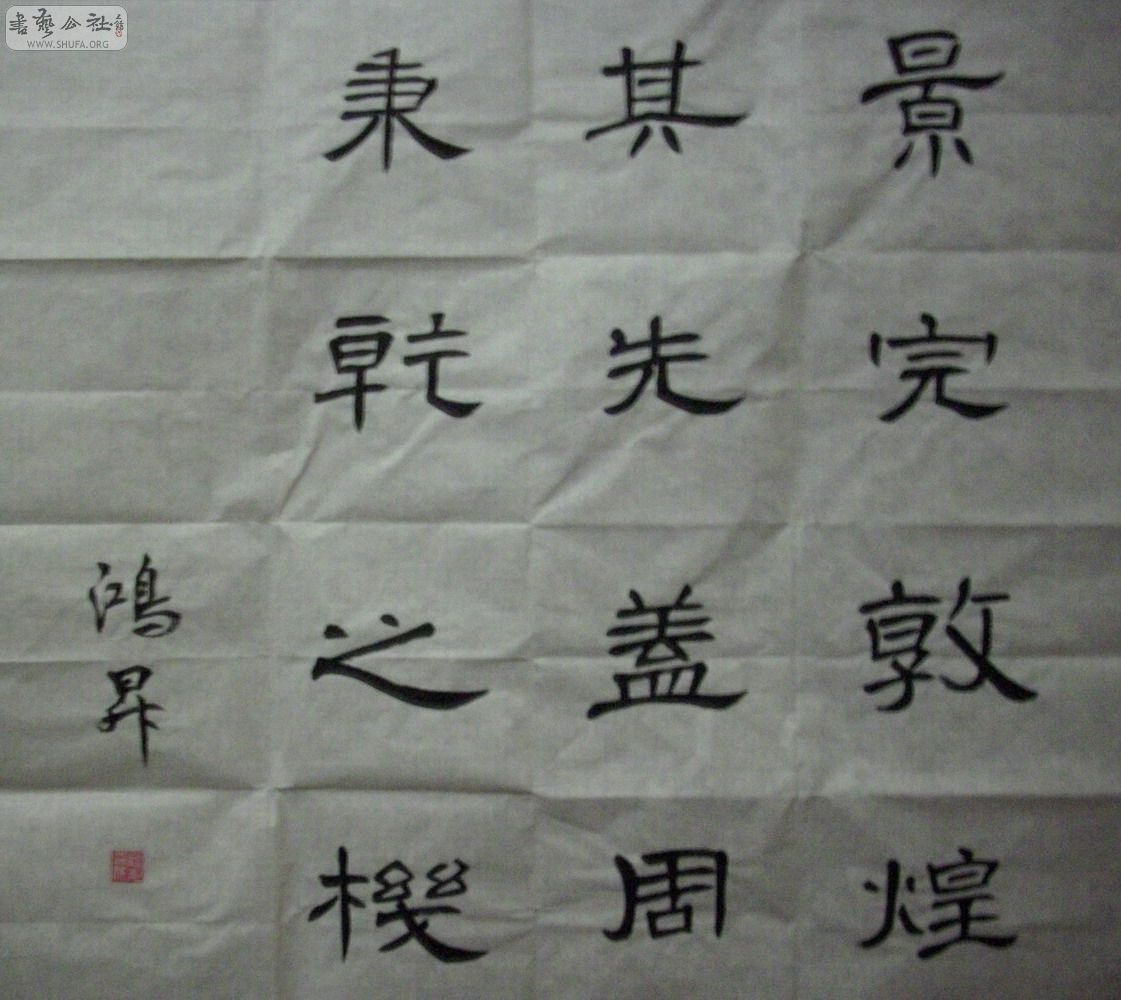 景完敦煌
其先蓋周
秉乾之機
鴻昇
書藝公社
WWW.SHUFA.ORG